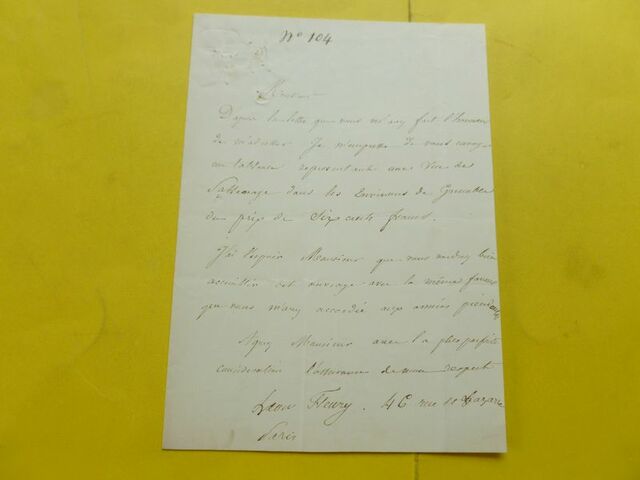 N° 104
Monsieur
D'après la lettre que vous m'avez fait l'honneur
de m'adresser Je m'empresse de vous envoyer
un tableau représentant une Vue de
Sassenage dans les Environs de Grenoble
du prix de Six cents francs.
J'ai l'espoir Monsieur que vous voudrez bien
accueillir cet ouvrage avec la même faveur
que vous m'avez accordée aux années précédentes
Agréez Monsieur avec la plus parfaite
considération l'assurance de mon respect
Léon Fleury. 46 rue St Lazare
Paris